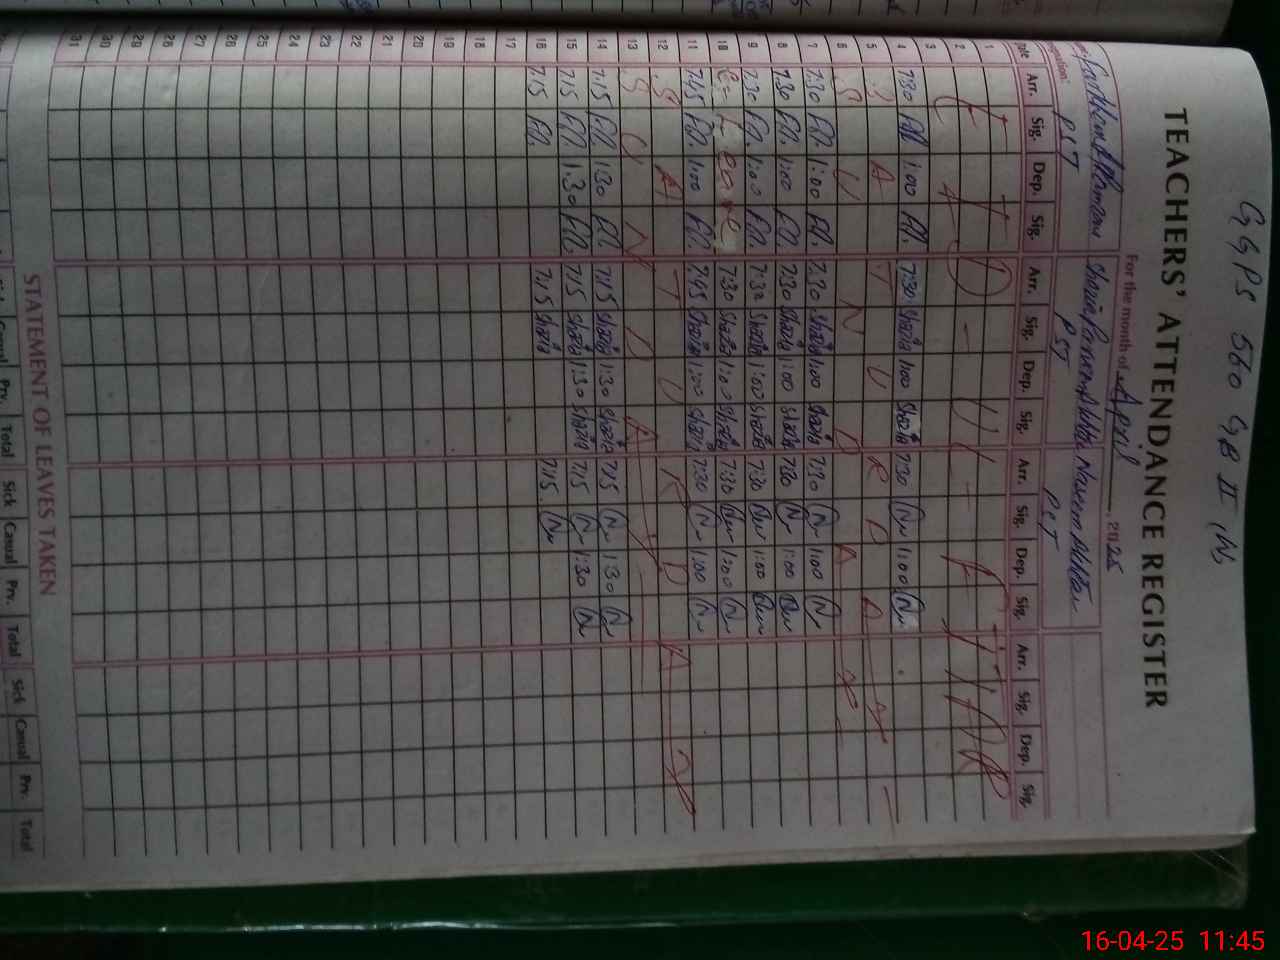 GGPS 560 GB II (W)
TEACHERS' ATTENDANCE REGISTER
For the month of April, 2025
Shazia Parveen Akhtar Naseem Akhtar
PST PST PST
Date Arr. Sig. Dep. Sig. Arr. Sig. Dep. Sig. Arr. Sig. Dep. Sig. Arr. Sig. Dep. Sig.
1
2 EID-UL-FITR
3
4 7:30 1:00 7:30 Shazia 1:00 Shazia 7:30 1:00
5 SATURDAY
6 SUNDAY
7 7:30 1:00 7:30 Shazia 1:00 Shazia 7:30 1:00
8 7:30 1:00 7:30 Shazia 1:00 Shazia 7:30 1:00
9 7:30 1:00 7:30 Shazia 1:00 Shazia 7:30 1:00
10 C-Leave 7:30 Shazia 1:00 Shazia 7:30 1:00
11 7:45 1:00 7:45 Shazia 1:00 Shazia 7:30 1:00
12 SATURDAY
13 SUNDAY
14 7:15 1:30 7:15 Shazia 1:30 Shazia 7:15 1:30
15 7:15 1:30 7:15 Shazia 1:30 Shazia 7:15 1:30
16 7:15 7:15 Shazia 7:15
17
18
19
20
21
22
23
24
25
26
27
28
29
30
31
STATEMENT OF LEAVES TAKEN
Casual Prv. Total Sick Casual Prv. Total Sick Casual Prv. Total
16-04-25 11:45